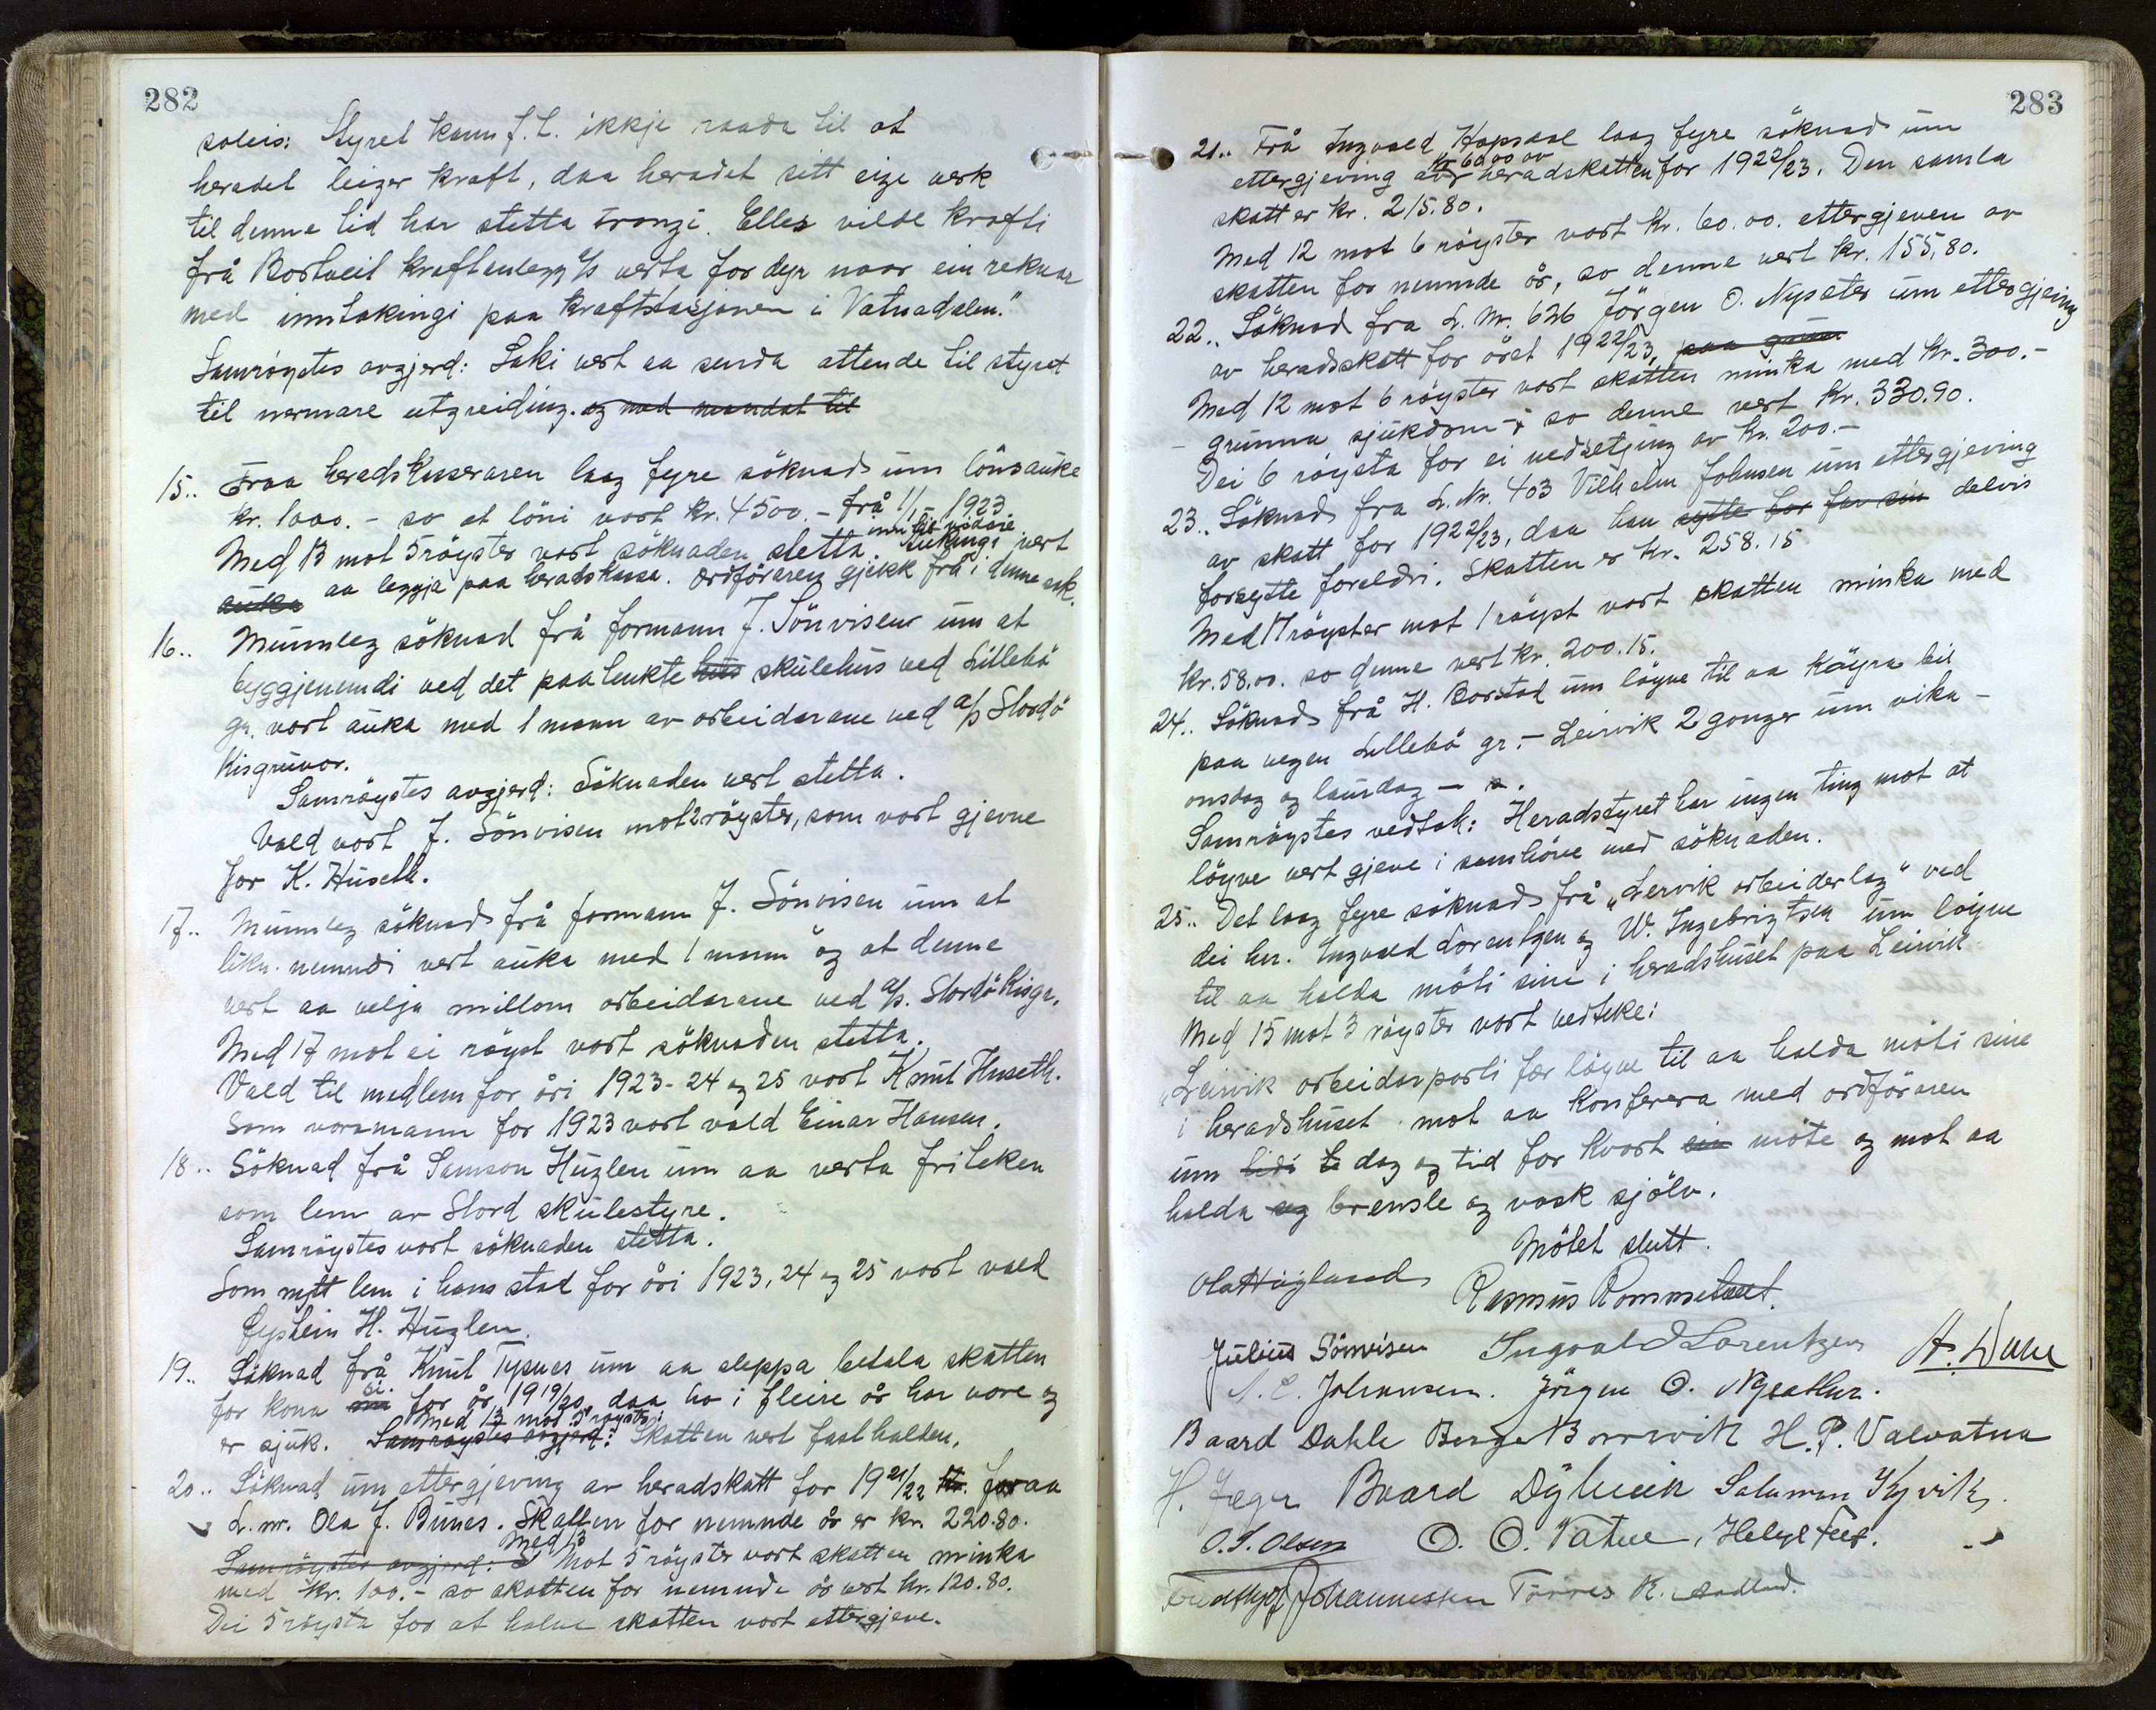 282
soleis: Styret kann f.t. ikkje raada til at
heradet leiger kraft, daa heradet sitt eige verk
til denne tid har stetta trongi. Elles vilde krafti
frå Bortveit kraftanlegg a/s verta for dyr naar ein reknar
med inntakingi paa kraftstasjonen i Vatnadalen."
Samröystes avgjerd: Saki vert aa senda attende til styret
til nermare utgreiding. og med mandat til
15.. Fraa heradskaseraren laag fyre söknad um lönsauke
kr. 1000.- so at löni vart kr. 4500.- frå 1/1 1923
Med 13 mot 5 röyster vart söknaden stetta. inntil vidare aukingi vert
auka aa leggja paa heradskassa. Ordföraren gjekk frå i denne sak.
16.. Munnleg söknad frå formann J. Sönvisen um at
byggjenemndi ved det paatenkte hus skulehus ved Lillebö
gr. vart auka med 1 mann av arbeidarane ved a/s Stordö
Kisgruvor.
Samröystes avgjerd: Söknaden vert stetta.
Vald vart J. Sönvisen mot 2 röyster, som vart gjevne
for K. Huseth.
17.. Munnleg söknad frå formann J. Sönvisen um at
likn. nemndi vert auka med 1 mann og at denne
vert aa velja millom arbeidarane ved a/s. Stordö Kisgr.
Med 17 mot ei röyst vart söknaden stetta.
Vald til medlem for åri 1923-24 og 25 vart Knut Huseth.
Som varamann for 1923 vart vald Einar Hansen.
18.. Söknad frå Samson Huglen um aa verta friteken
som lem av Stord skulestyre.
Samröystes vart söknaden stetta.
Som nytt lem i hans stad for åri 1923, 24 og 25 vart vald
Öystein H. Huglen.
19.. Söknad frå Knut Tysnes um aa sleppa betala skatten
for kona si. for år 1919/20 daa ho i fleire år har vore og
er sjuk. Samröystes avgjerd: Med 13 mot 5 röyster: Skatten vert fasthalden.
20.. Söknad um ettergjeving av heradskatt for 1921/22 kr. fraa
L. nr. Ola J. Bunes. Skatten for nemnde år er kr. 220.80.
Samröystes avgjerd: Med 13 mot 5 röyster vart skatten minka
med kr. 100.- so skatten for nemnde år vert kr. 120.80.
Dei 5 röysta for at halve skatten vart ettergjeve.
283
21.. Frå Ingvald Hopsdal laag fyre söknad um
ettergjeving av kr 60.00 av heradskatten for 1922/23. Den samla
skatt er kr. 215.80.
Med 12 mot 6 röyster vart kr. 60.00. ettergjeven av
skatten for nemnde år, so denne vert kr. 155,80.
22.. Söknad fra L. Nr. 626 Jörgen O. Nysæter um ettergjeving
av heradsskatt for året 1922/23, paa grunn
Med 12 mot 6 röyster vart skatten minka med kr. 300.-
- grunna sjukdom - so denne vert kr. 330.90.
Dei 6 röysta for ei nedsetjing av kr. 200.-
23.. Söknad fra L. Nr. 403 Vilhelm Johnsen um ettergjeving
av skatt for 1922/23, daa han sytte for far sin delvis
forsytte foreldri. Skatten er kr. 258.15
Med 17 röyster mot 1 röyst vart skatten minka med
kr. 58.00. so denne vert kr. 200.15.
24.. Söknad frå H. Borstad um löyve til aa köyra bil
paa vegen Lillebö gr. - Leirvik 2 gonger um vika -
onsdag og laurdag - .
Samröystes vedtak: Heradstyret har ingen ting mot at
löyve vert gjeve i samhöve med söknaden.
25.. Det laag fyre söknad frå "Leirvik arbeiderlag" ved
dei hrr. Ingvald Lorentzen og W. Ingebrigtsen um löyve
til aa halda möti sine i heradshuset paa Leirvik
Med 15 mot 3 röyster vart vedteke:
"Leirvik arbeidarparti fær löyve til aa halda möti sine
i heradshuset mot aa konferera med ordföraren
um tidi te dag og tid for kvart sin möte og mot aa
halda seg brensle og vask sjölv.
Mötet slutt.
Ola Höyland Rasmus Rommetveit.
Julius Sönvisen Ingvald Lorentzen
N. E. Johannsen. Jörgen O. Nysæther.
Baard Dahle Berge Borrevik H. P. Valvatna
H. Jæger Baard Digernes Salamon Kyvik.
O. S. Olsen O. O. Vatne, Helge Feet.
Fredthjof Johannessen Torres K. Sadland.